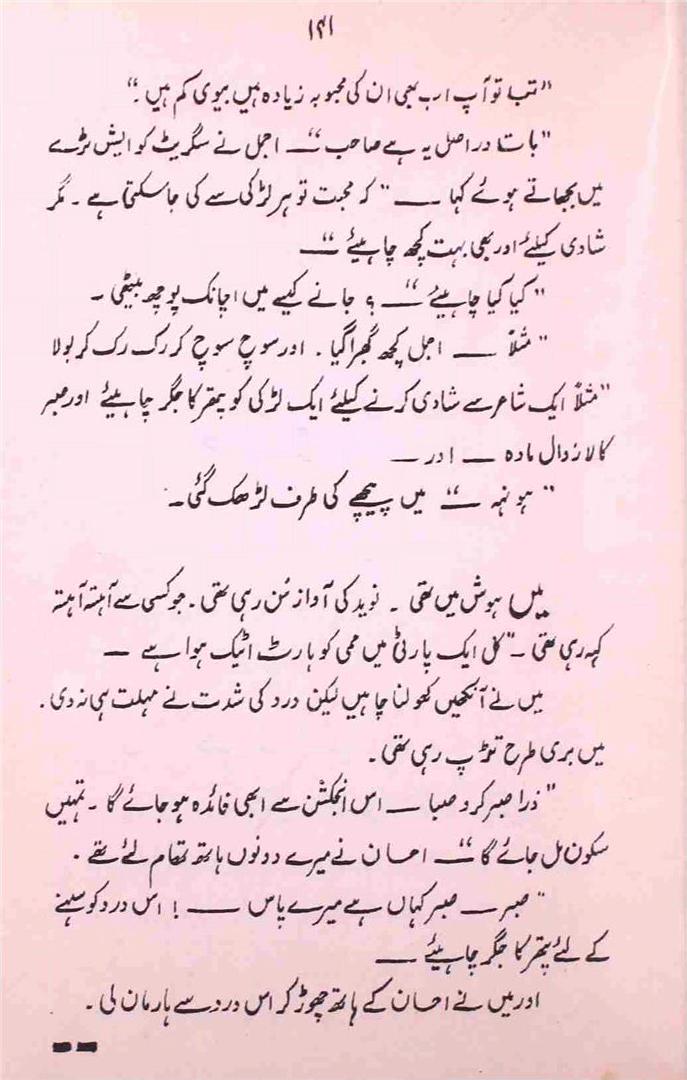 ۱۴۱
"تب تو آپ اب بھی ان کی محبوبہ زیادہ ہیں بیوی کم ہیں۔"
"بات دراصل یہ ہے صاحب" ـــ اجمل نے سگریٹ کو ایش ٹرے
میں بجھاتے ہوئے کہا ـــ "کہ محبت تو ہر لڑکی سے کی جا سکتی ہے۔ مگر
شادی کیلئے اور بھی بہت کچھ چاہیئے" ـــ
"کیا کیا چاہیئے" ـــ ؟ جانے کیسے میں اچانک پوچھ بیٹھی۔
"مثلاً ـــ اجمل کچھ گھبرا گیا۔ اور سوچ سوچ کر رک رک کر بولا
"مثلاً ایک شاعر سے شادی کرنے کیلئے ایک لڑکی کو پتھر کا جگر چاہیئے اور صبر
کا لازوال مادہ ـــ اور ـــ
"ہونہہ" ـــ میں پیچھے کی طرف لڑھک گئی۔
میں ہوش میں تھی۔ نوید کی آواز سُن رہی تھی۔ جو کسی سے آہستہ آہستہ
کہہ رہی تھی۔ "کل ایک پارٹی میں ممی کو ہارٹ اٹیک ہوا ہے ـــ
میں نے آنکھیں کھولنا چاہیں لیکن درد کی شدت نے مہلت ہی نہ دی۔
میں بری طرح تڑپ رہی تھی۔
"ذرا صبر کرو صبا ـــ اس انجکشن سے ابھی فائدہ ہو جائے گا۔ تمہیں
سکون مل جائے گا" ـــ احسان نے میرے دونوں ہاتھ تھام لئے تھے۔
"صبر ـــ صبر کہاں ہے میرے پاس ـــ ! اس درد کو سہنے
کے لئے پتھر کا جگر چاہیئے ـــ
اور میں نے احسان کے ہاتھ چھوڑ کر اس درد سے ہار مان لی۔